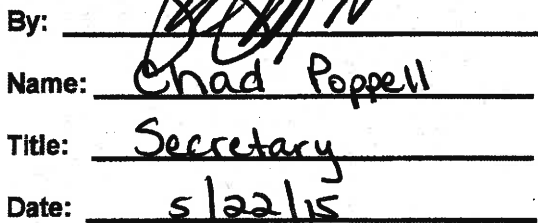 By:
Name: Chad Poppell
Title: Secretary
Date: 5/22/15